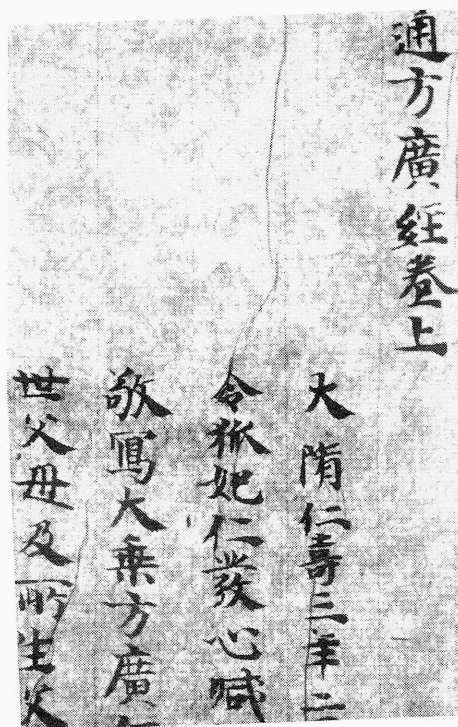 通方廣經卷上
大隋仁壽三年二
令狐妃仁發心減
敬寫大乗方廣
世父母及所生父